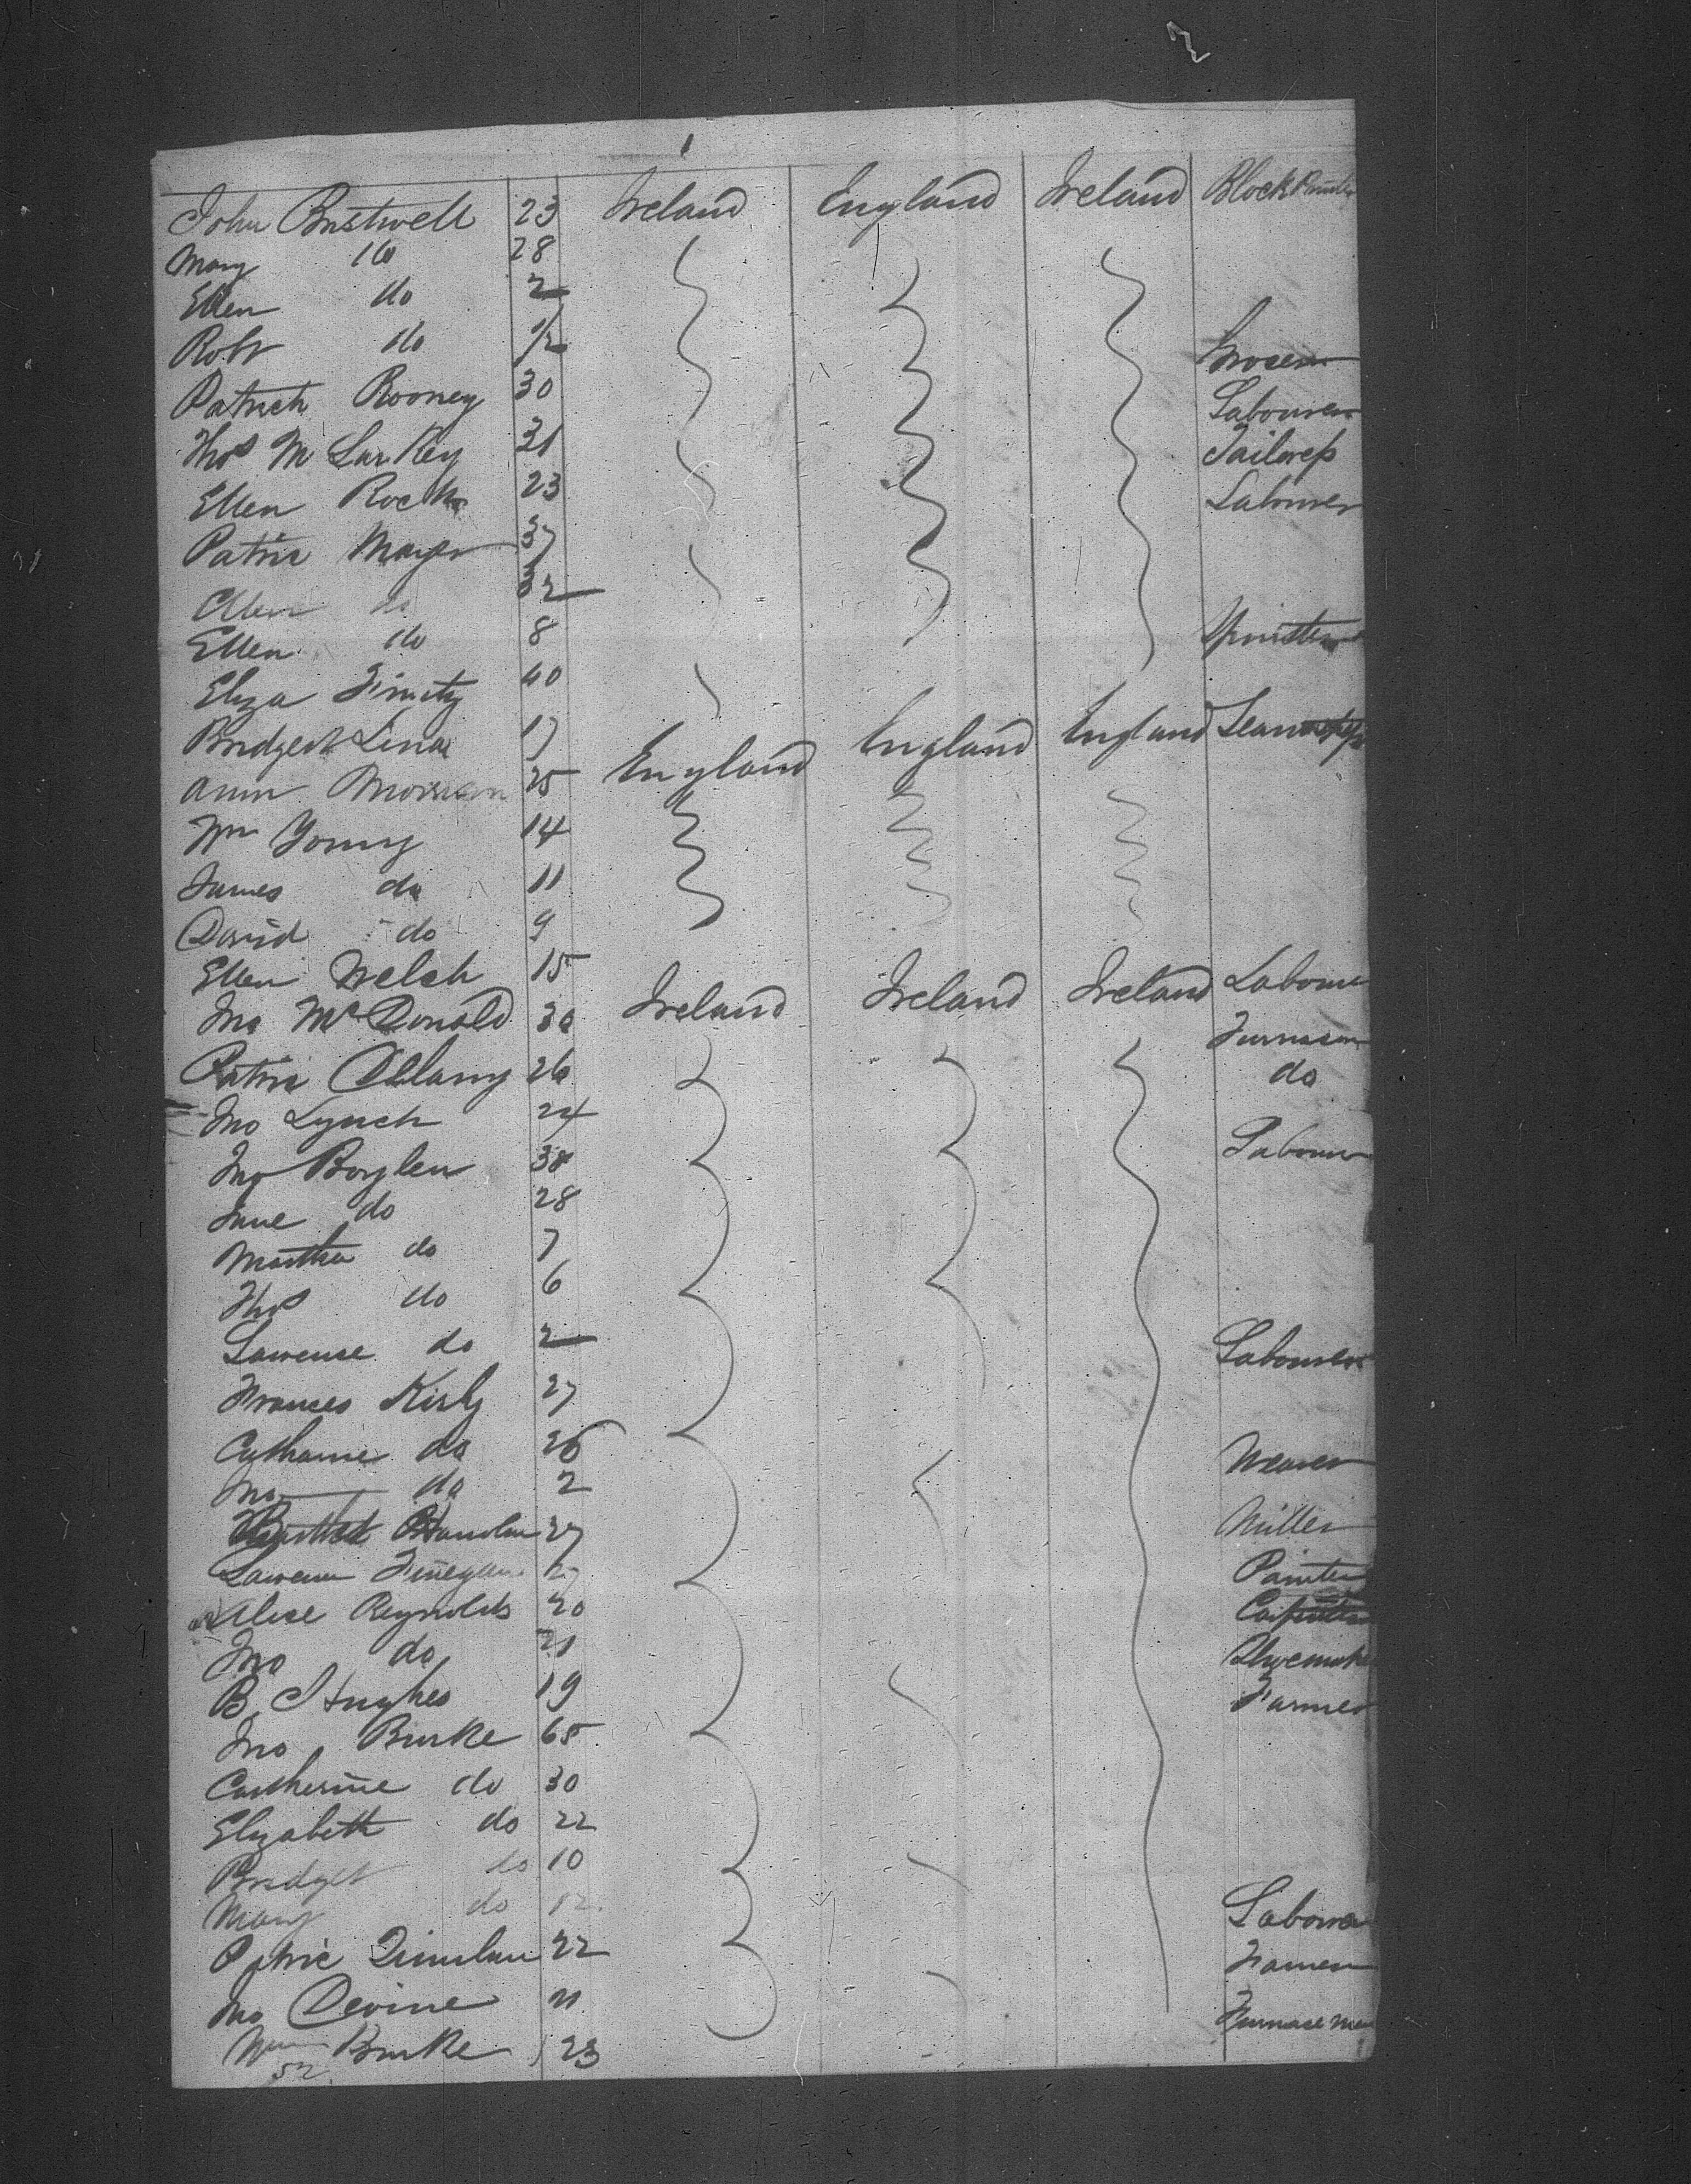 2
1
John Bustwell 23 Ireland England Ireland Block Printer
Mary do 28
Ellen do 2
Robt do 1/2
Patrick Rooney 30 Grocer
Thos Mc Larkey 31 Labourer
Ellen Rock 23 Tailoress
Patric Mayer 37 Labourer
Ellen do 32
Ellen do 8
Eliza Finity 40 Spinster
Bridget Lina 17
Ann Morrison 25 England England England Seamstress
Wm Young 14
James do 11
David do 9
Ellen Welch 15
Jno McDonald 30 Ireland Ireland Ireland Labourer
Patric Cellany 26 Furnaceman
Jno Lynch 24 do
Jno Boylen 38 Labourer
Jane do 28
Martha do 7
Thos do 6
Lawrence do 2
Frances Kirby 27 Labourer
Catharine do 26
Jno do 2
Handlin 27 Weaver
Lawrence Finegan 27 Miller
Alice Reynolds 20 Painter
Jno do 21 Carpenter
B. Hughes 19 Shoemaker
Jno Burke 65 Farmer
Catherine do 30
Elizabeth do 22
Bridget do 10
Mary do 12
Patric 22 Labourer
Jno Devine 21 Farmer
Wm Burke 23 Furnace man
52